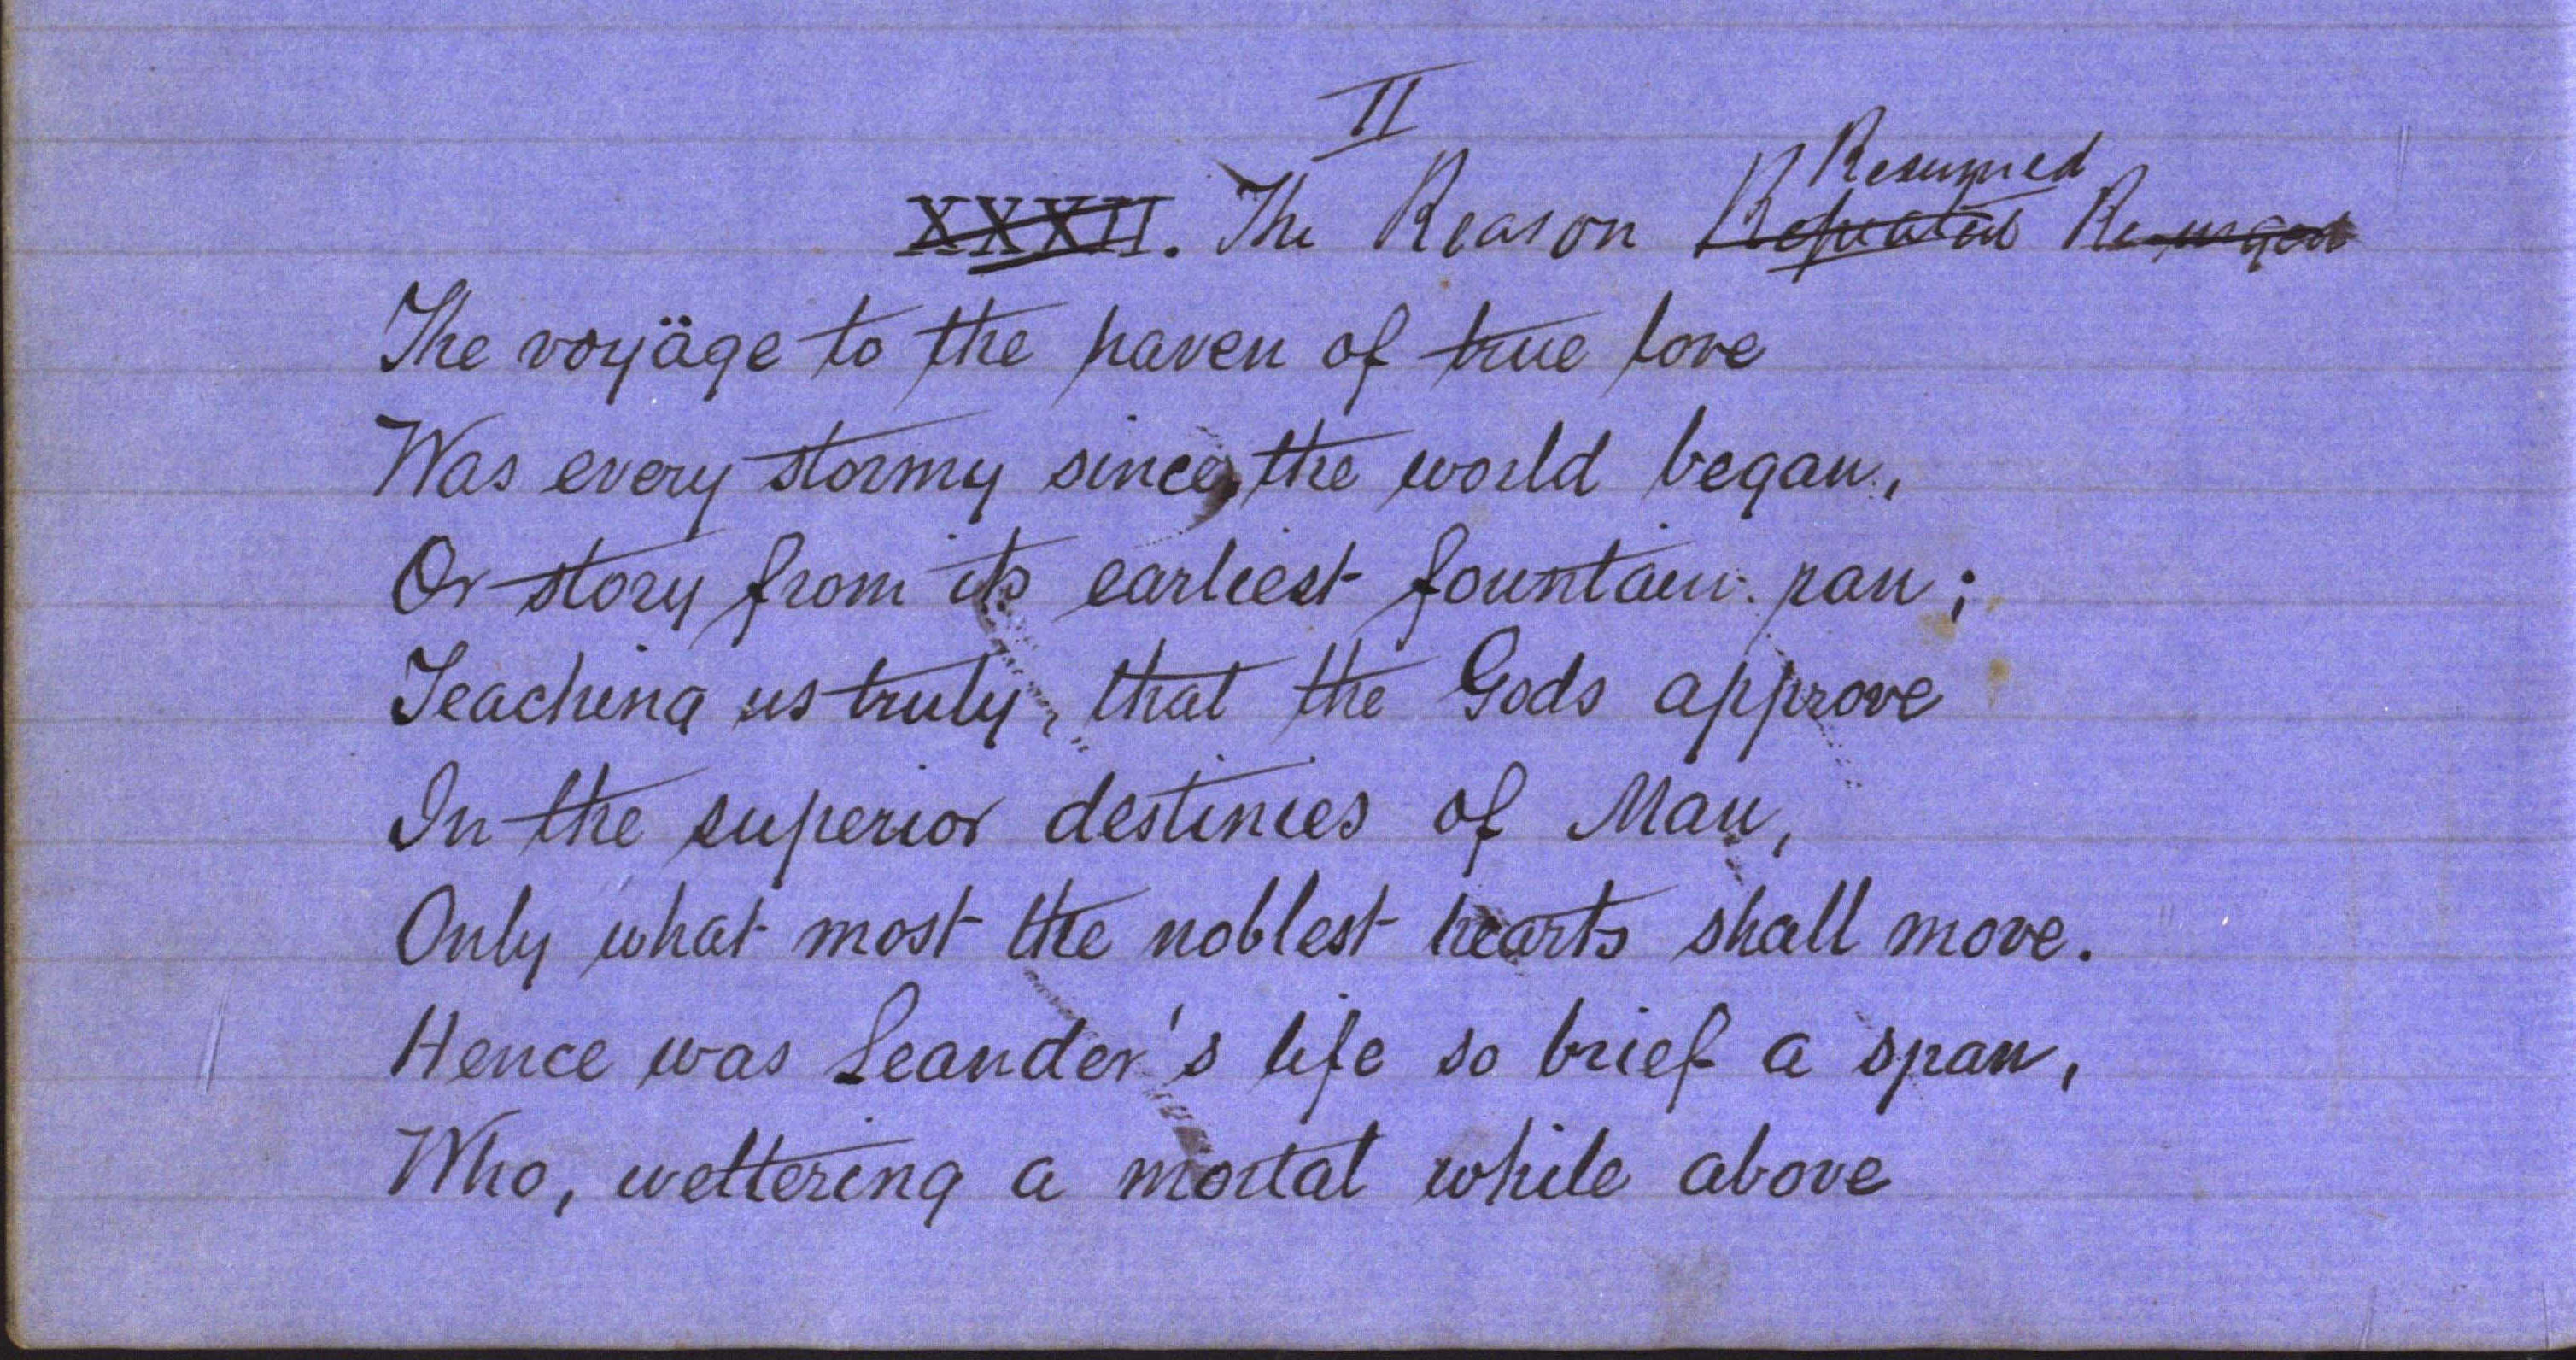 II
Resumed
XXXII. The Reason Repeated Re-urged
The voyäge to the haven of true love
Was every stormy since, the world began,
Or story from its earliest fountain ran;
Teaching us truly, that the Gods approve
In the superior destinies of Man,
Only what most the noblest hearts shall move.
Hence was Leander's life so brief a span,
Who, weltering a mortal while above